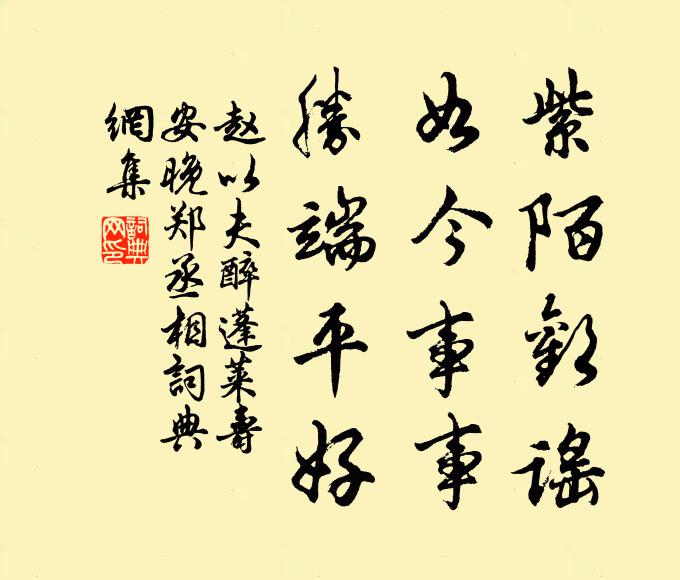 紫陌歡謠
如今事事
勝端平好
赵以夫醉蓬莱壽
安晚郑丞相詞典
網集
詞典
网印